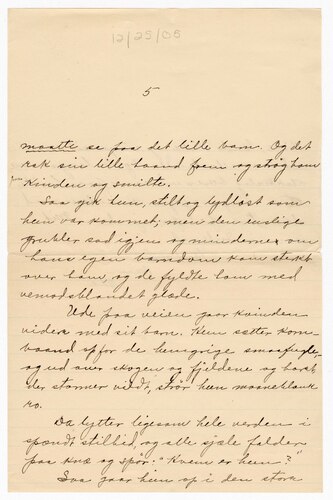 12/25/05
5
maatte se paa det lille barn. Og det
rak sin lille haand frem og strøg ham
Kinden og smilte.
Saa gik hun, stilt og lydløst som
hun var kommet; men den enslige
grubler sad igjen og minderne om
hans egen barndom kom sterkt
over ham, og de fyldte ham med
vemodsblandet glæde.
Ude paa veien gaar kvinden
videre med sit barn. Hun sætter korn-
baand op for de hungrige smaafugle,
og ud over skogen og fjeldene og havet
der stormer vildt, strør hun maaneblank
ro.
Da lytter ligesom hele verden i
spændt stilhed, og alle sjæle falder
paa knæ og spør: "Hvem er hun?"
Saa gaar hun op i den store